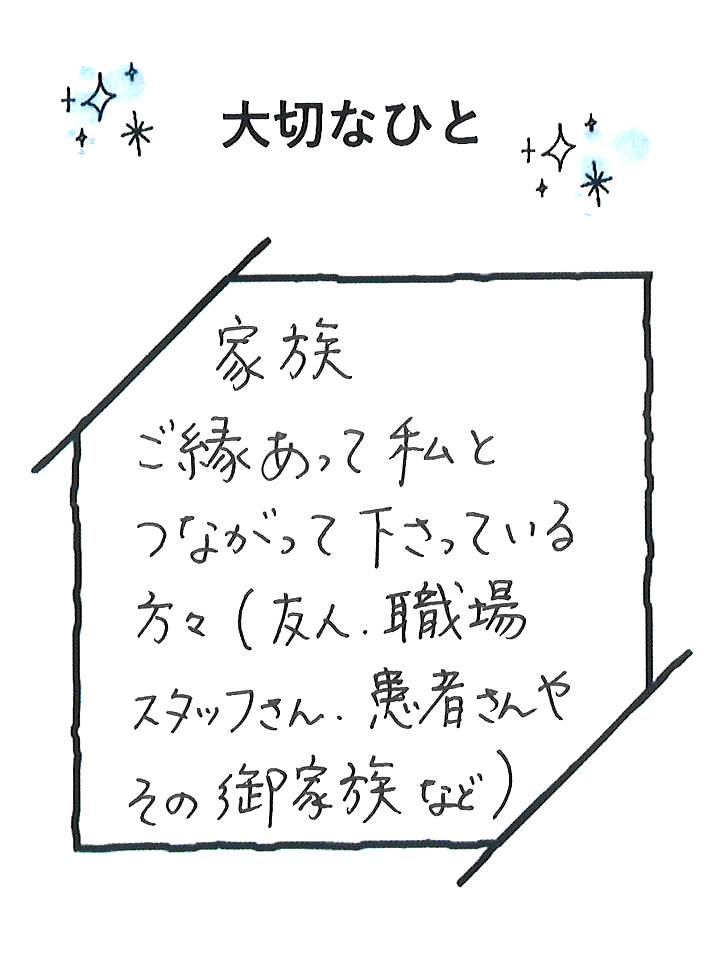 大切なひと
家族
ご縁あって私と
つながって下さっている
方々(友人.職場
スタッフさん.患者さんや
その御家族など)